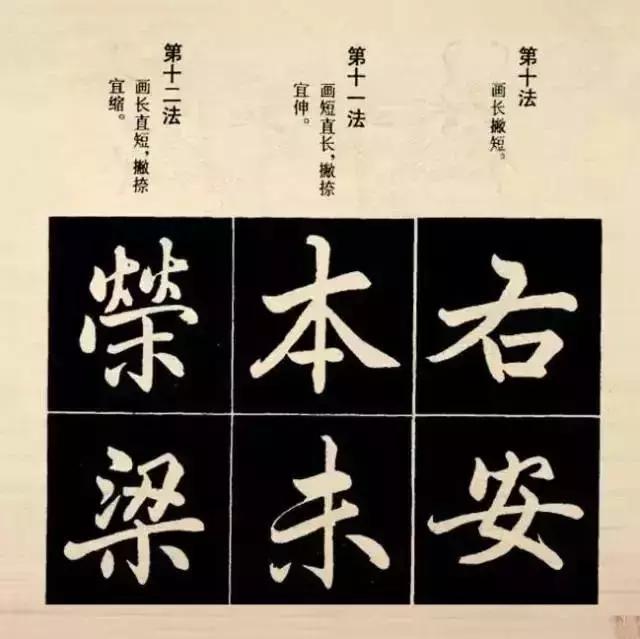 第十法
画长撇短。
右
安
第十一法
画短直长，撇捺
宜伸。
本
未
第十二法
画长直短，撇捺
宜缩。
榮
梁